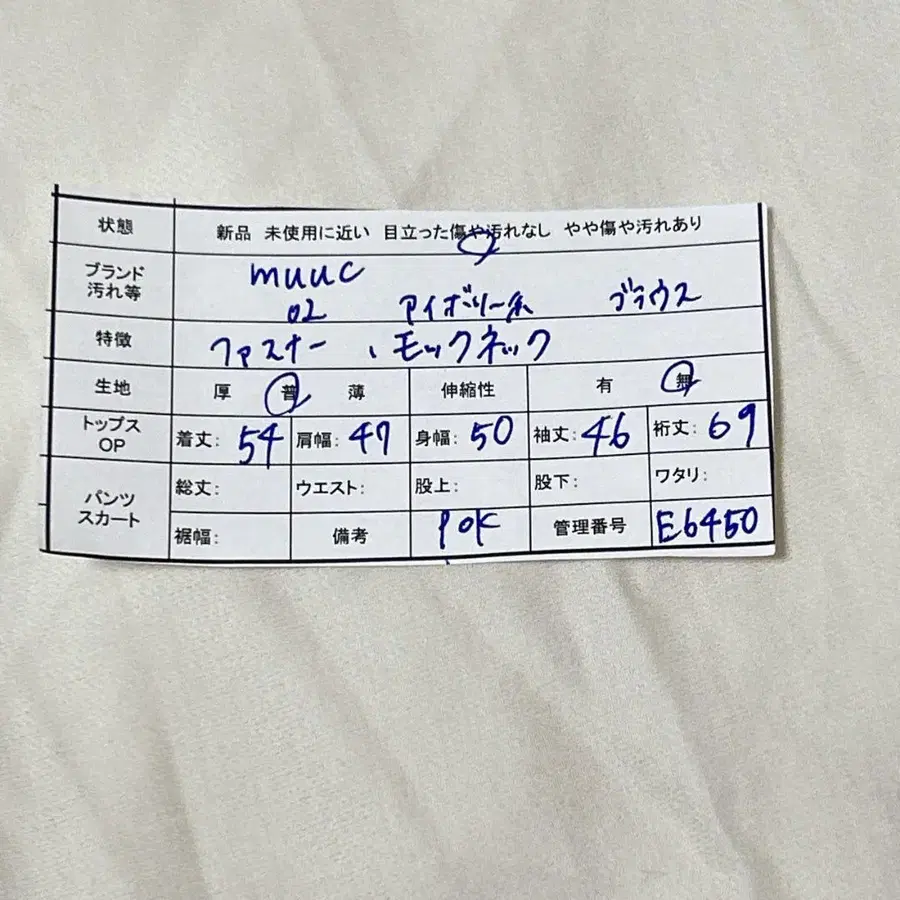 状態 新品 未使用に近い 目立った傷や汚れなし やや傷や汚れあり
ブランド muuc
汚れ等 02 アイボリー系 ブラウス
特徴 ファスナー、モックネック
生地 厚 普 薄 伸縮性 有 無
トップス OP 着丈: 54 肩幅: 47 身幅: 50 袖丈: 46 裄丈: 69
パンツ スカート 総丈: ウエスト: 股上: 股下: ワタリ:
裾幅: 備考 POK 管理番号 E6450